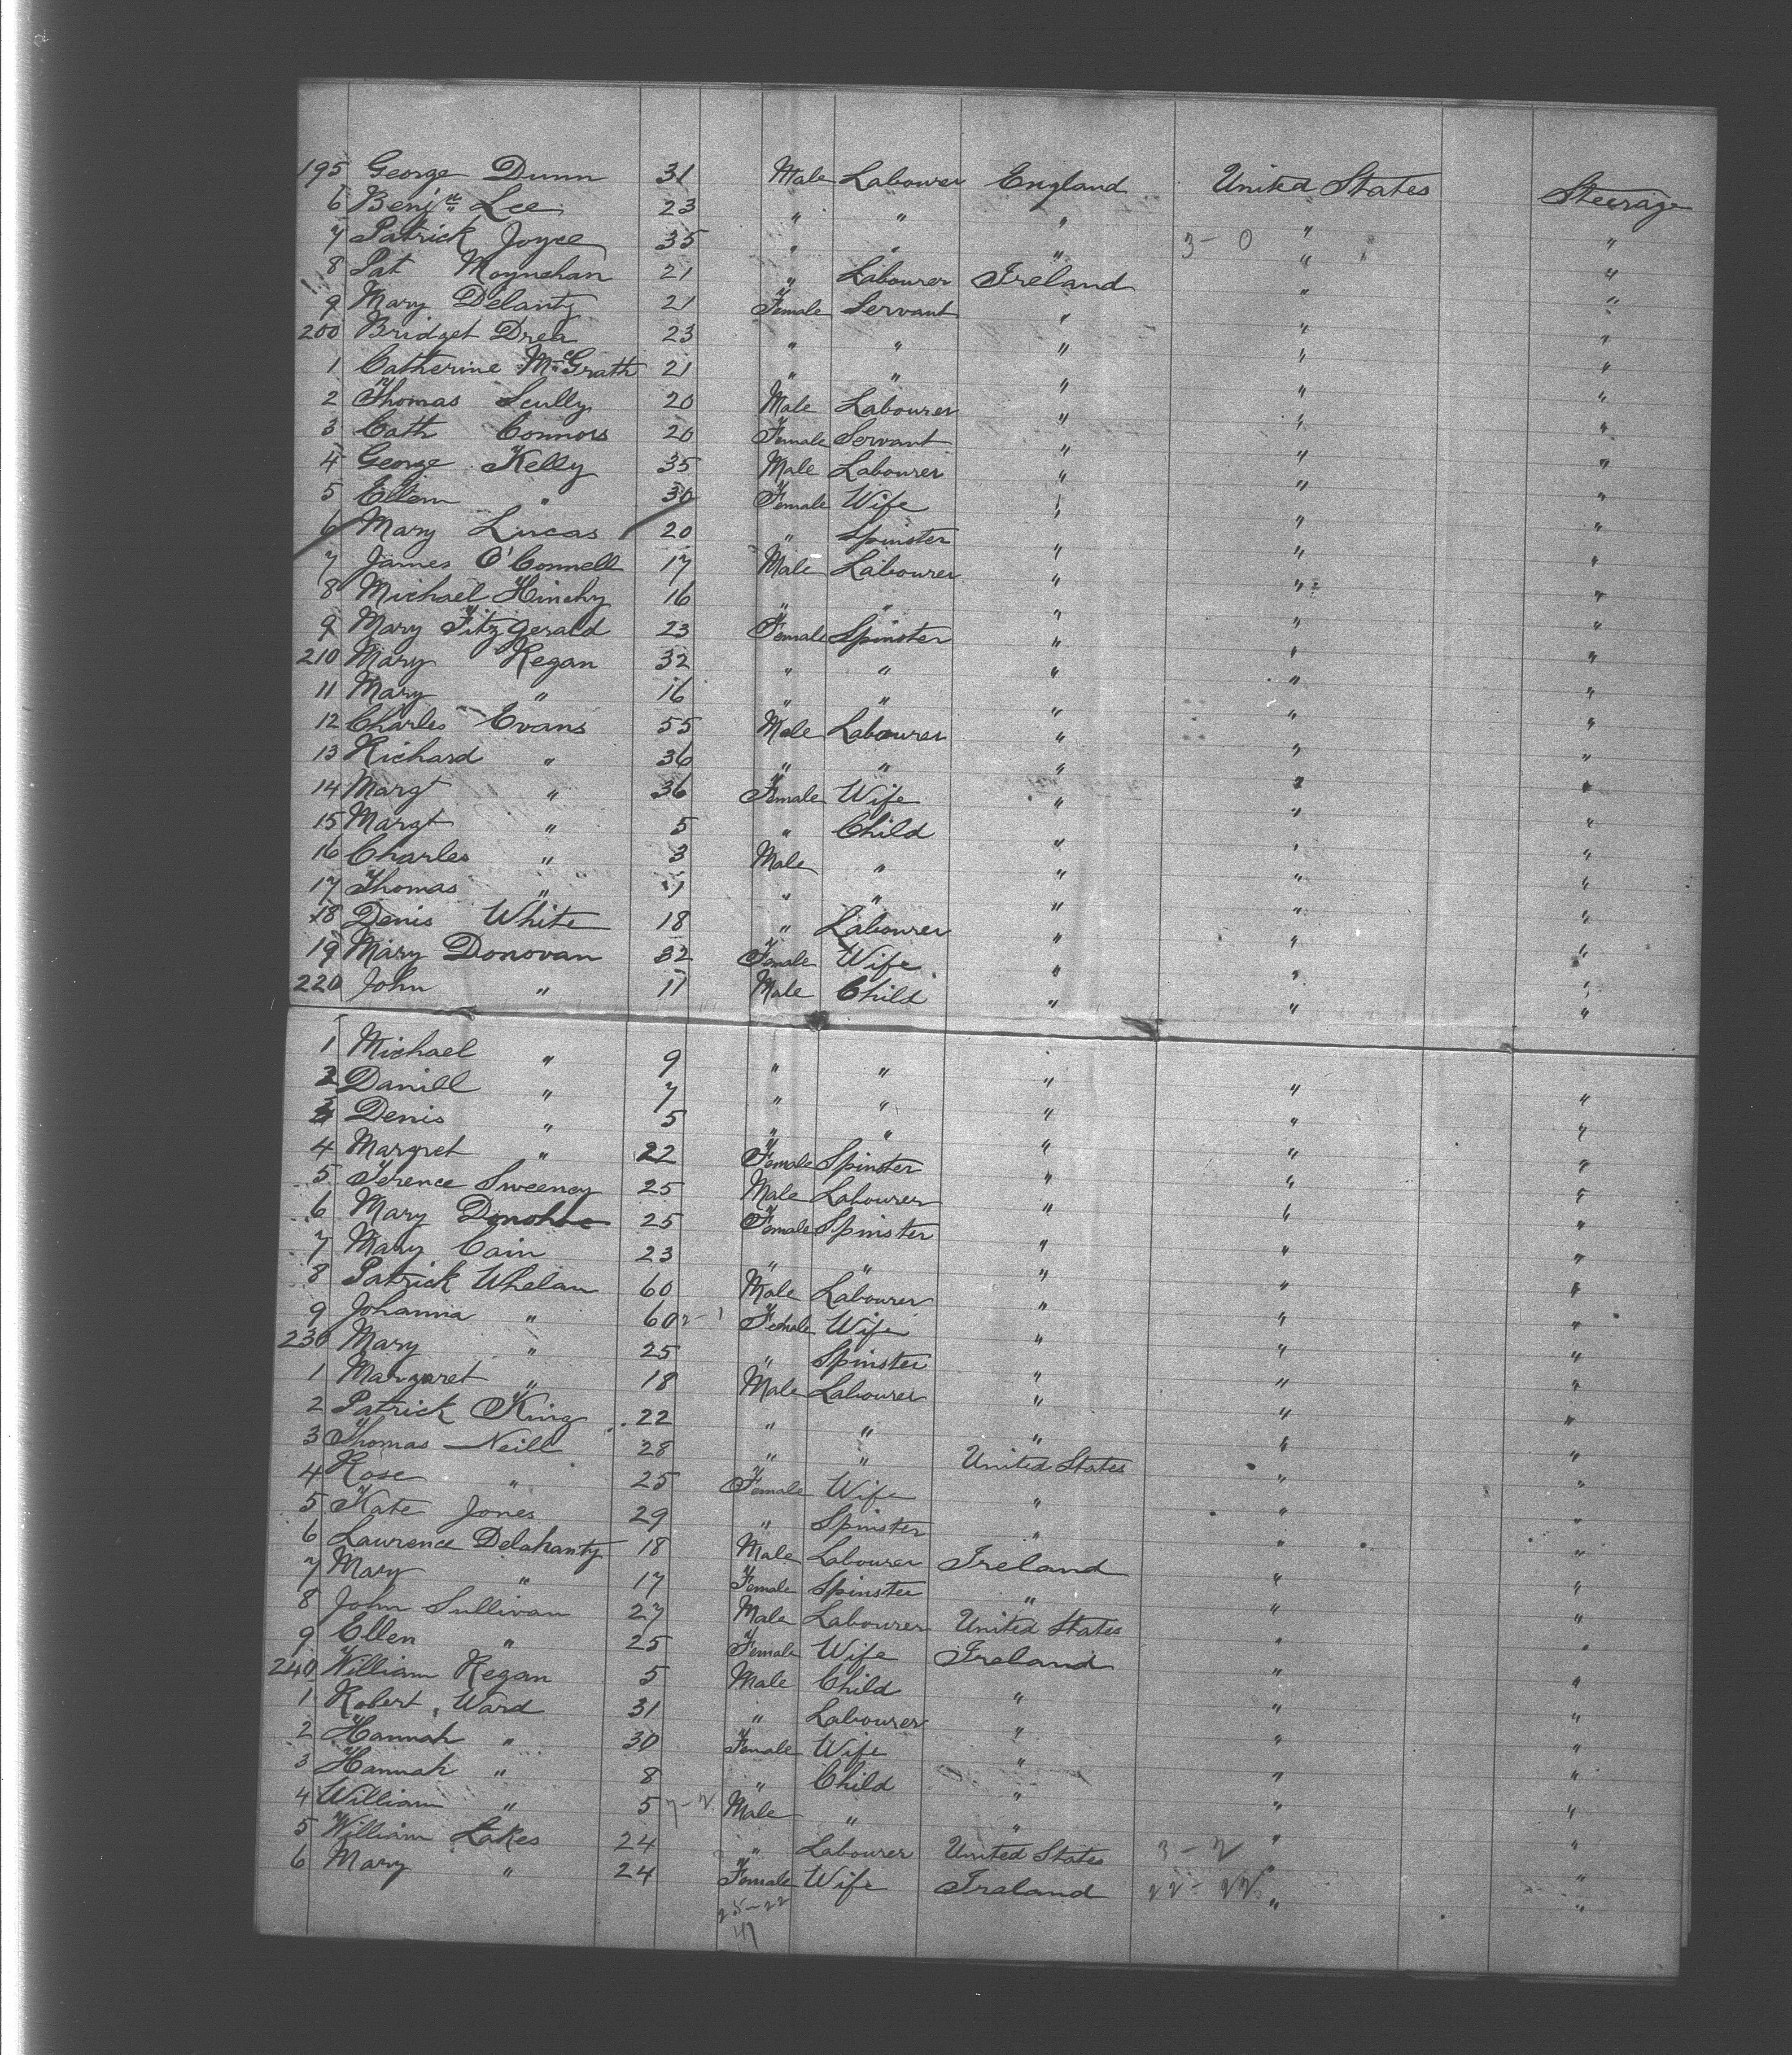 195 George Dunn 31 Male Labourer England United States Steerage
6 Benjn Lee 23 " " " " "
7 Patrick Joyce 35 " " " 3-0 " "
8 Pat Moynehan 21 " Labourer Ireland " "
9 Mary Delanty 21 Female Servant " " "
200 Bridget Drea 23 " " " " "
1 Catherine McGrath 21 " " " " "
2 Thomas Scully 20 Male Labourer " " "
3 Cath Connors 20 Female Servant " " "
4 George Kelly 35 Male Labourer " " "
5 Ellen " 30 Female Wife " " "
6 Mary Lucas 20 " Spinster " " "
7 James O'Connell 17 Male Labourer " " "
8 Michael Hinchy 16 " " " " "
9 Mary Fitzgerald 23 Female Spinster " " "
210 Mary Regan 32 " " " " "
11 Mary " 16 " " " " "
12 Charles Evans 55 Male Labourer " " "
13 Richard " 36 " " " " "
14 Margt " 36 Female Wife " " "
15 Margt " 5 " Child " " "
16 Charles " 3 Male " " " "
17 Thomas " 1 " " " " "
18 Denis White 18 " Labourer " " "
19 Mary Donovan 32 Female Wife " " "
220 John " 11 Male Child " " "
1 Michael " 9 " " " " "
2 Daniel " 7 " " " " "
3 Denis " 5 " " " " "
4 Margret " 22 Female Spinster " " "
5 Terence Sweeney 25 Male Labourer " " "
6 Mary Donohoe 25 Female Spinster " " "
7 Mary Cain 23 " " " " "
8 Patrick Whelan 60 Male Labourer " " "
9 Johanna " 60 2-1 Female Wife " " "
230 Mary " 25 " Spinster " " "
1 Margaret " 18 Male Labourer " " "
2 Patrick King 22 " " " " "
3 Thomas Neill 28 " " United States " "
4 Rose " 25 Female Wife " " "
5 Kate Jones 29 " Spinster " " "
6 Lawrence Delahanty 18 Male Labourer Ireland " "
7 Mary " 17 Female Spinster " " "
8 John Sullivan 27 Male Labourer United States " "
9 Ellen " 25 Female Wife Ireland " "
240 William Regan 5 Male Child " " "
1 Robert Ward 31 " Labourer " " "
2 Hannah " 30 Female Wife " " "
3 Hannah " 8 " Child " " "
4 William " 5 7-2 Male " " " "
5 William Lakes 24 " Labourer United States 3-2 " "
6 Mary " 24 Female Wife Ireland 22-22 " "
25-22
47